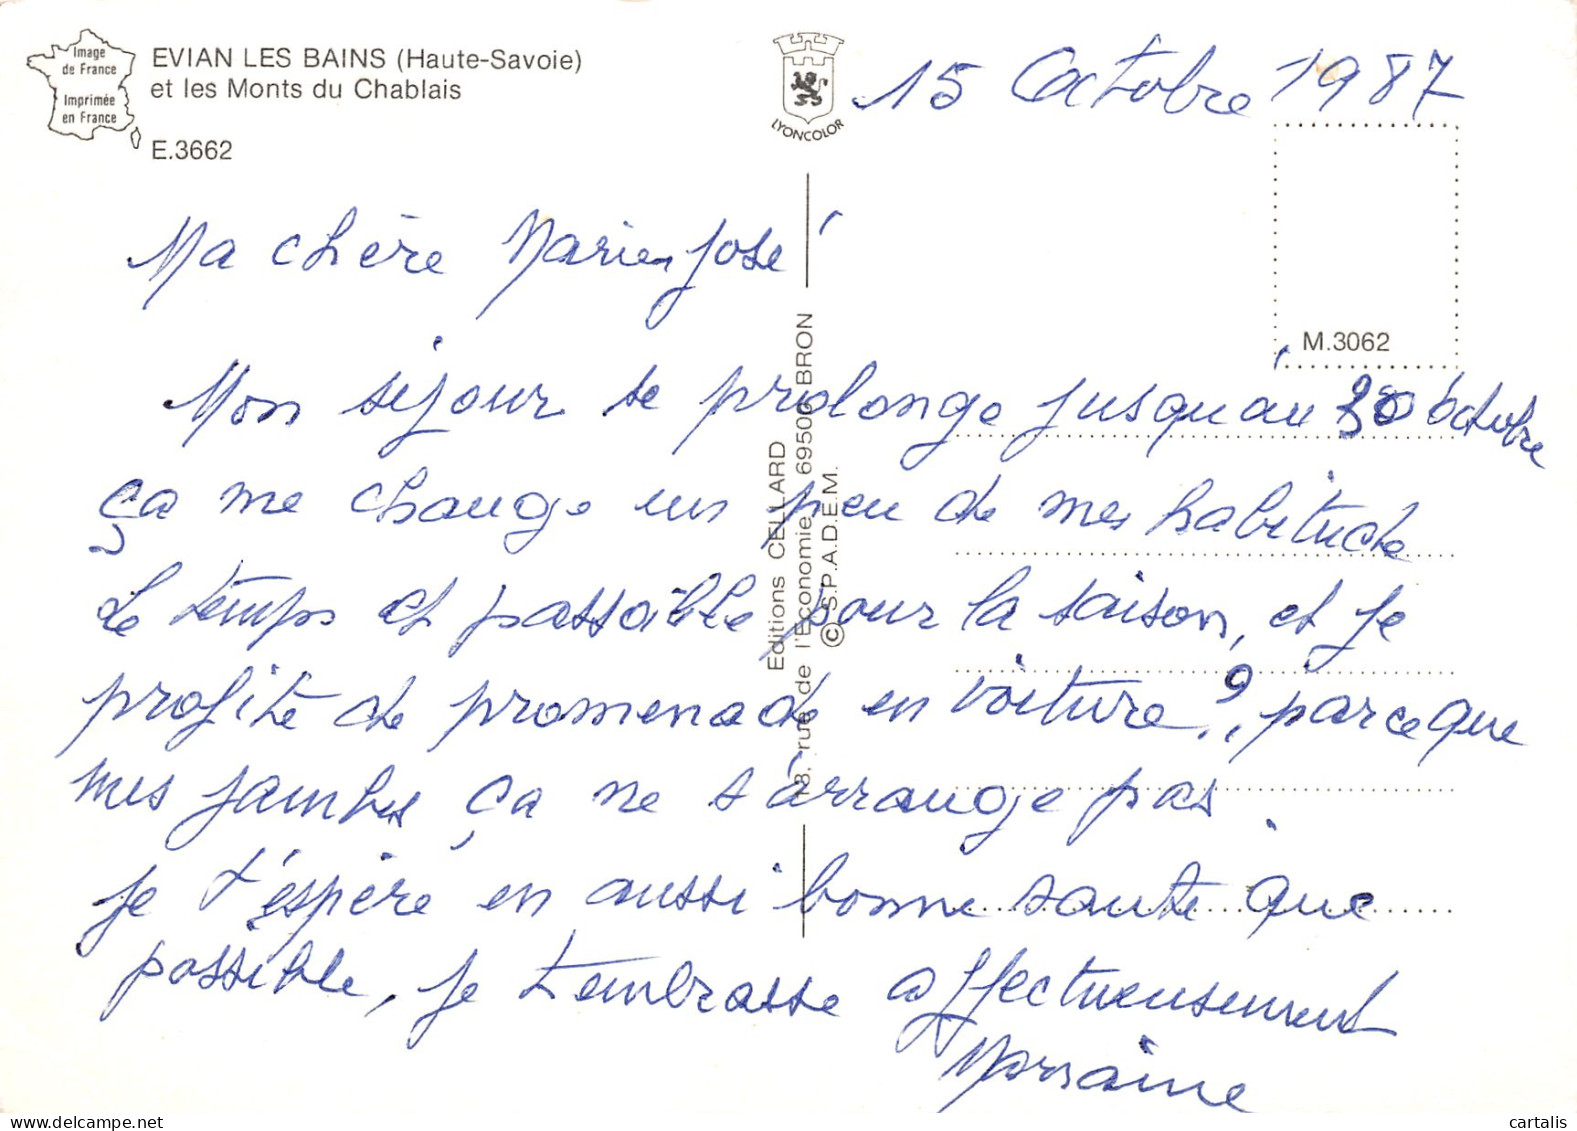 Image
de France
Imprimée
en France
EVIAN LES BAINS (Haute-Savoie)
et les Monts du Chablais
E.3662
LYONCOLOR
15 Octobre 1987
M.3062
Editions CELLARD
18, rue de l'Economie 69500 BRON
© S.P.A.D.E.M.
Ma chère Marie José
Mon séjour se prolonge jusqu'au 30 octobre
ça me change un peu de mes habitude
Le temps est passable pour la saison, et je
profite de promenade en voiture, parce que
mes jambes ça ne s'arrange pas.
je t'espère en aussi bonne santé que
possible, je t'embrasse affectueusement
Marraine
cartalis